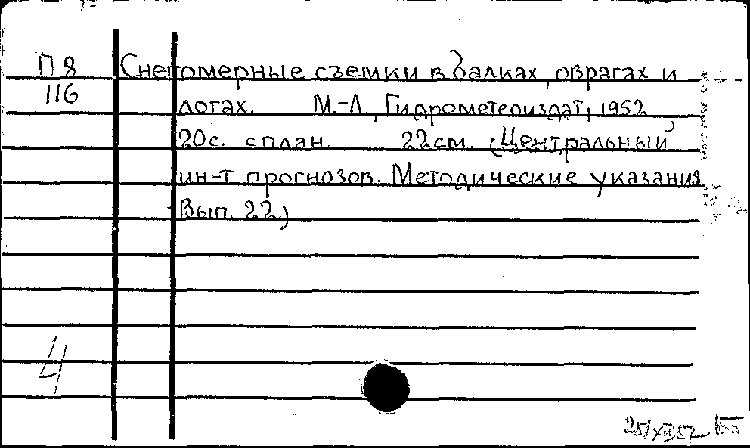 П 8 Снегомерные съемки в балках, оврагах и
116 логах. М.-Л., Гидрометеоиздат, 1952
20с. с план. 22см. (Центральный
ин-т прогнозов. Методические указания
Вып. 22)
4